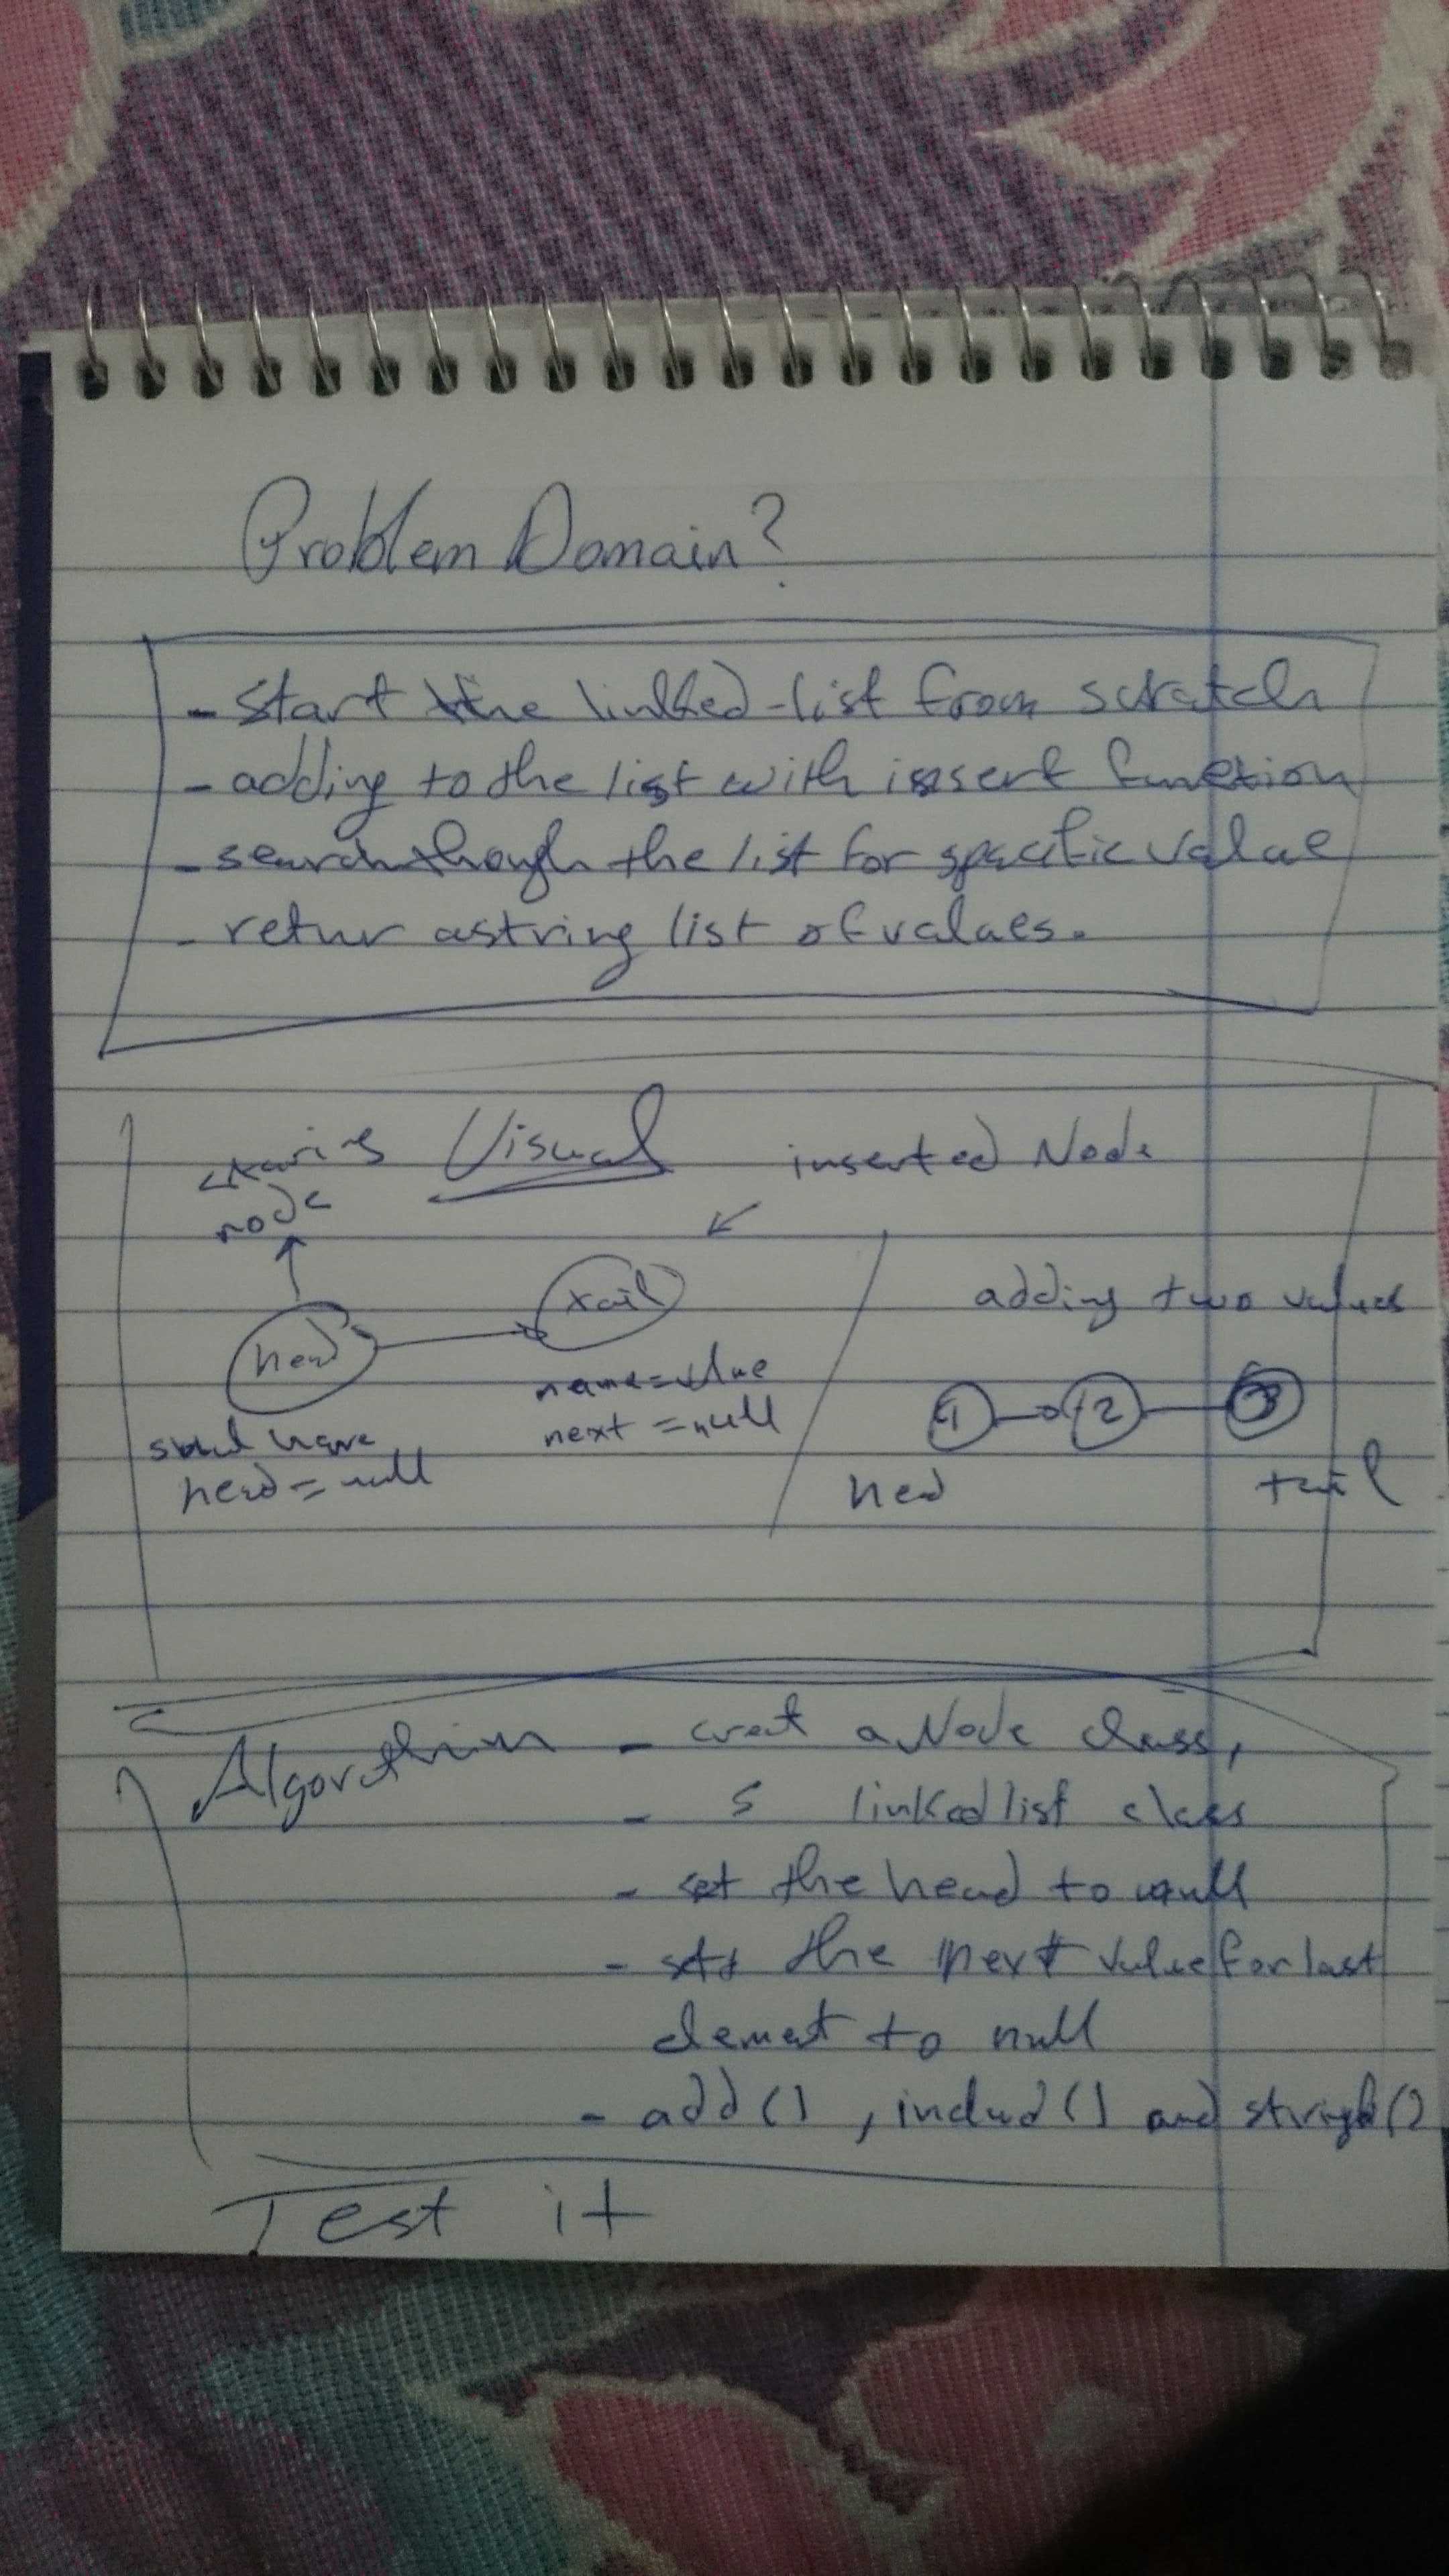 Problem Domain?
- start the linked-list from scratch
- adding to the list with insert function
- search though the list for specific value
- retur a string list of values.
Visual
node
inserted Node
head
tail
name=value
next=null
have
head=null
adding two values
1 2 3
head tail
Algorothim
- creat a Node class,
- linkedlist class
- set the head to null
- sets the next value for last
element to null
- add() , includ() and
Test it